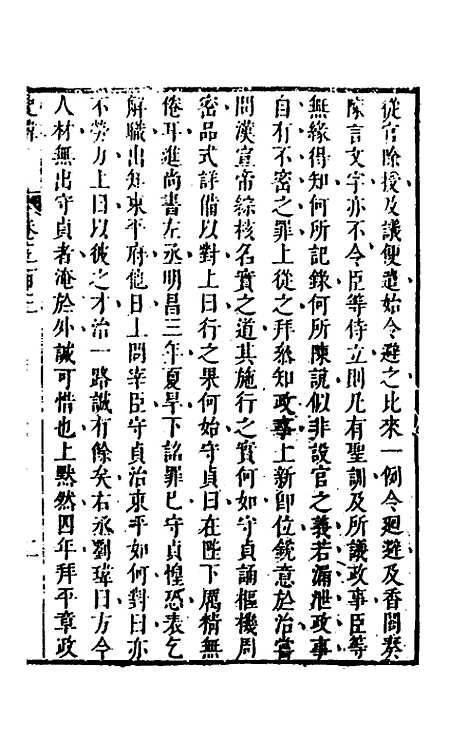 從官除授及議便遣始令避之比來一例令廻避及香閤奏
陳言文字亦不令臣等侍立則凡有聖訓及所議政事臣等
無緣得知何所記錄何所陳說似非設官之義若漏泄政事
自有不密之罪上從之拜叅知政事上新卽位銳意於治嘗
問漢宣帝綜核名實之道其施行之實何如守貞誦樞機周
密品式詳備以對上曰行之果何始守貞曰在陛下厲精無
倦耳進尚書左丞明昌三年夏旱下詔罪已守貞惶恐表乞
解職出知東平府他日上問宰臣守貞治東平如何對曰亦
不勞力上曰以彼之才治一路誠有餘矣右丞劉瑋曰方今
人材無出守貞者淹於外誠可惜也上黙然四年拜平章政